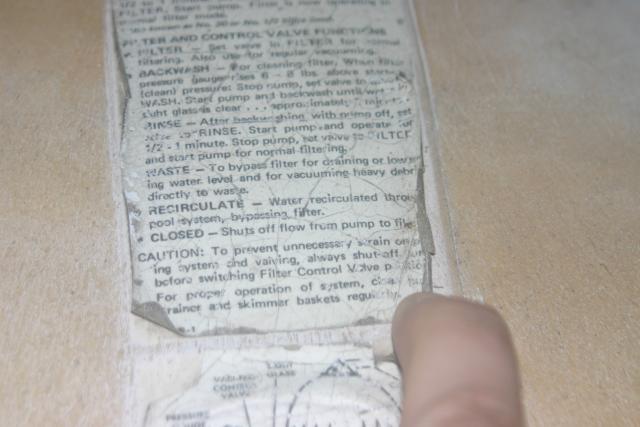 1/2 to 1 minute
FILTER. Start pump. Filter is now operating in
normal filter mode.
FILTER AND CONTROL VALVE FUNCTIONS
• FILTER — Set valve to FILTER for normal
filtering. Also use for regular vacuuming.
• BACKWASH — For cleaning filter. When filter
pressure gauge rises 6 - 8 lbs. above
(clean) pressure: Stop pump, set valve to
WASH. Start pump and backwash until
sight glass is clear . . . approximately
RINSE — After backwashing, with pump off, set
valve to RINSE. Start pump and operate for
1/2 - 1 minute. Stop pump, set valve to FILTER
and start pump for normal filtering.
WASTE — To bypass filter for draining or lower
ing water level and for vacuuming heavy debr
directly to waste.
RECIRCULATE — Water recirculated throu
pool system, bypassing filter.
• CLOSED — Shuts off flow from pump to filte
CAUTION: To prevent unnecessary strain on
ing system and valving, always shut-off
before switching Filter Control Valve
For proper operation of system, clean
strainer and skimmer baskets regularly
VARI-FLO
CONTROL
VALVE
SIGHT
GLASS
PRESSURE